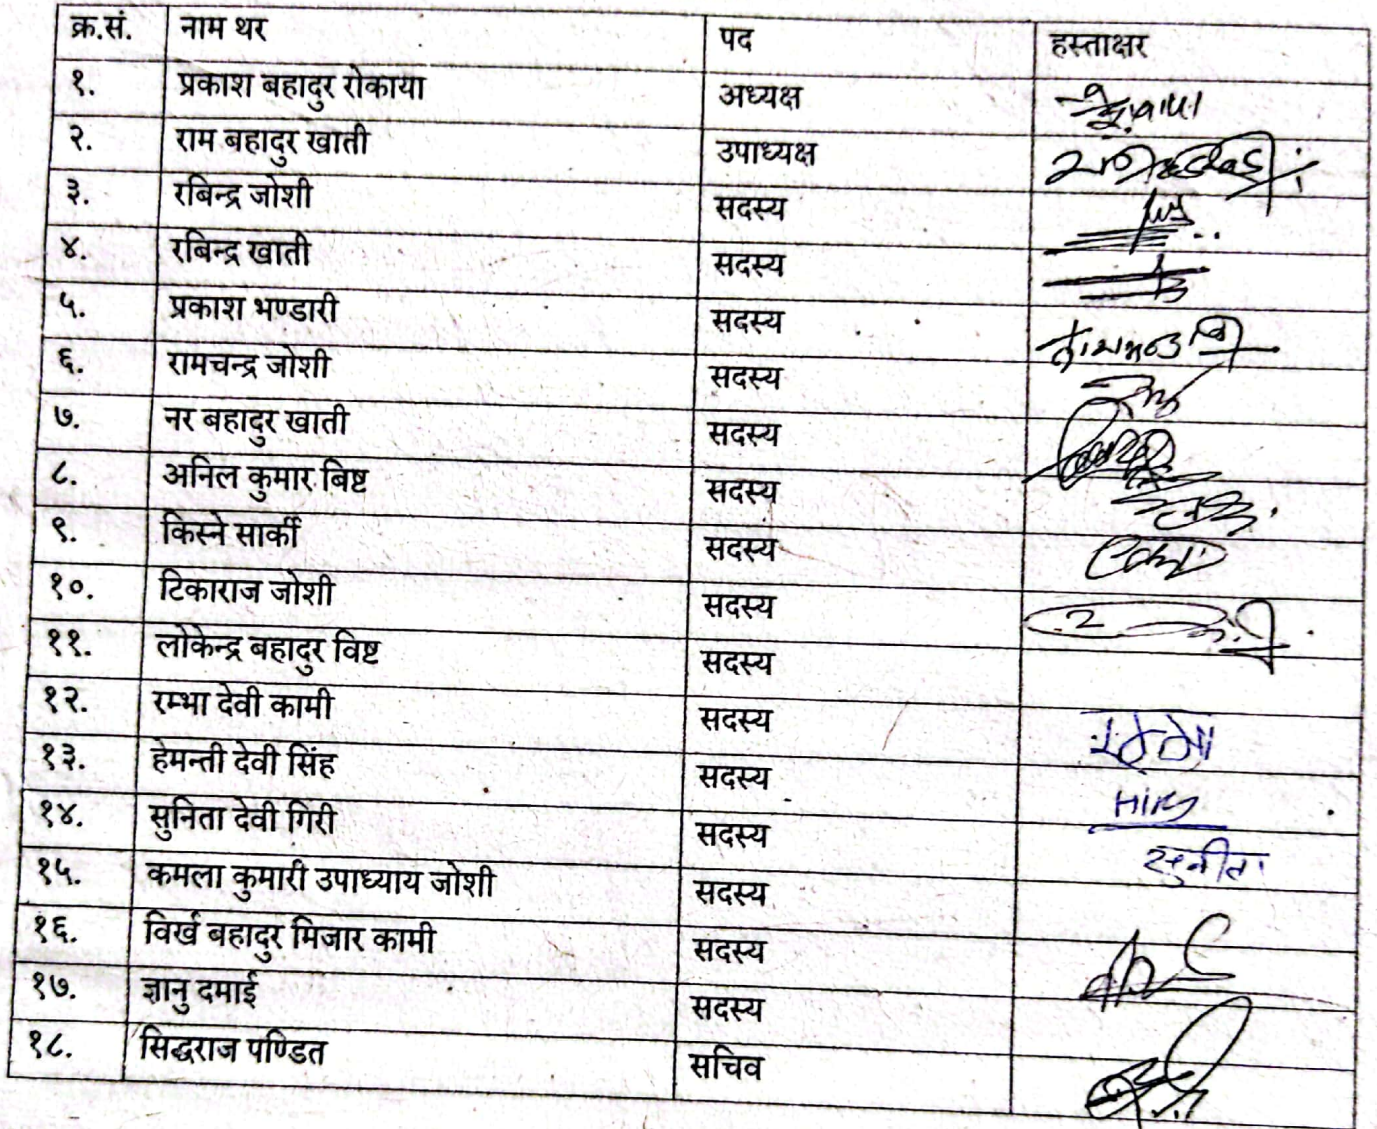 क्र.सं. नाम थर पद हस्ताक्षर
१. प्रकाश बहादुर रोकाया अध्यक्ष
२. राम बहादुर खाती उपाध्यक्ष
३. रबिन्द्र जोशी सदस्य
४. रबिन्द्र खाती सदस्य
५. प्रकाश भण्डारी सदस्य
६. रामचन्द्र जोशी सदस्य
७. नर बहादुर खाती सदस्य
८. अनिल कुमार बिष्ट सदस्य
९. किस्ने सार्की सदस्य
१०. टिकाराज जोशी सदस्य
११. लोकेन्द्र बहादुर विष्ट सदस्य
१२. रम्भा देवी कामी सदस्य
१३. हेमन्ती देवी सिंह सदस्य
१४. सुनिता देवी गिरी सदस्य सुनीता
१५. कमला कुमारी उपाध्याय जोशी सदस्य
१६. विर्ख बहादुर मिजार कामी सदस्य
१७. ज्ञानु दमाई सदस्य
१८. सिद्धराज पण्डित सचिव